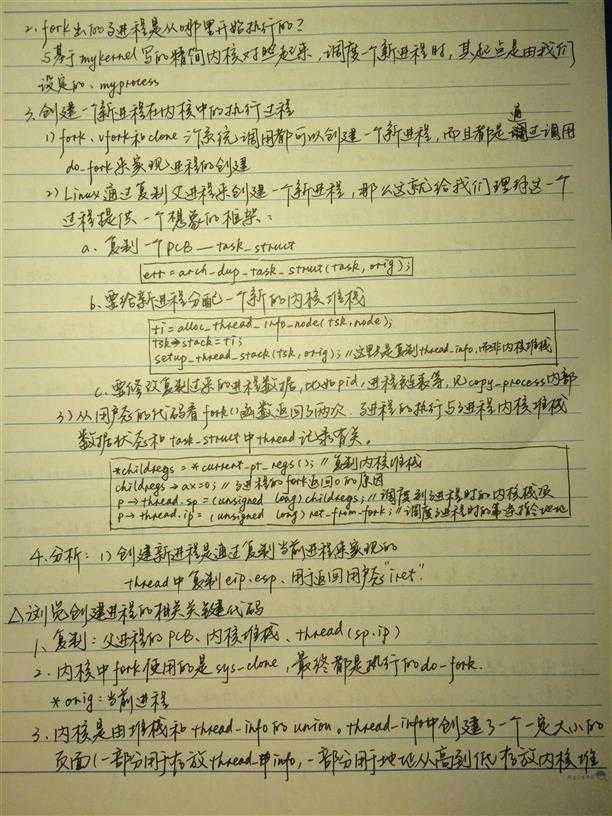 2. fork出的子进程是从哪里开始执行的?
与基于mykernel写的精简内核对照起来,调度一个新进程时,其起点是由我们
设定的、myprocess
3.创建一个新进程在内核中的执行过程
1) fork、vfork和clone 三个系统调用都可以创建一个新进程,而且都是通过调用
do_fork来实现进程的创建
2) Linux通过复制父进程来创建一个新进程,那么这就给我们理解这一个
过程提供一个想象的框架:
a. 复制一个PCB—task_struct
err=arch_dup_task_struct(task,orig);
b. 要给新进程分配一个新的内核堆栈
ti=alloc_thread_info_node(tsk,node);
tsk→stack=ti;
setup_thread_stack(tsk,orig); //这里只是复制thread_info,而非内核堆栈
c. 要修改复制过来的进程数据,比如pid,进程链表等,见copy_process内部
3) 从用户态的代码看fork()函数返回了两次.子进程的执行与子进程内核堆栈
数据状态和task_struct中thread记录有关。
*childregs=*current_pt_regs(); //复制内核堆栈
childregs→ax=0; //子进程的fork返回0的原因
p→thread.sp=(unsigned long)childregs; //调度到子进程时的内核栈顶
p→thread.ip=(unsigned long)ret_from_fork; //调度子进程时的第一条指令地址
4.分析: 1) 创建新进程是通过复制当前进程来实现的
thread中复制eip、esp、用于返回用户态"iret".
△浏览创建进程的相关关键代码
1、复制:父进程的PCB、内核堆栈、thread(sp.ip)
2. 内核中fork使用的是sys_clone,最终都是执行的do_fork.
*orig:当前进程
3.内核是由堆栈和thread_info的union。thread_info中创建了一个一定大小的
页面(一部分用于存放thread_info,一部分用于地址从高到低存放内核堆